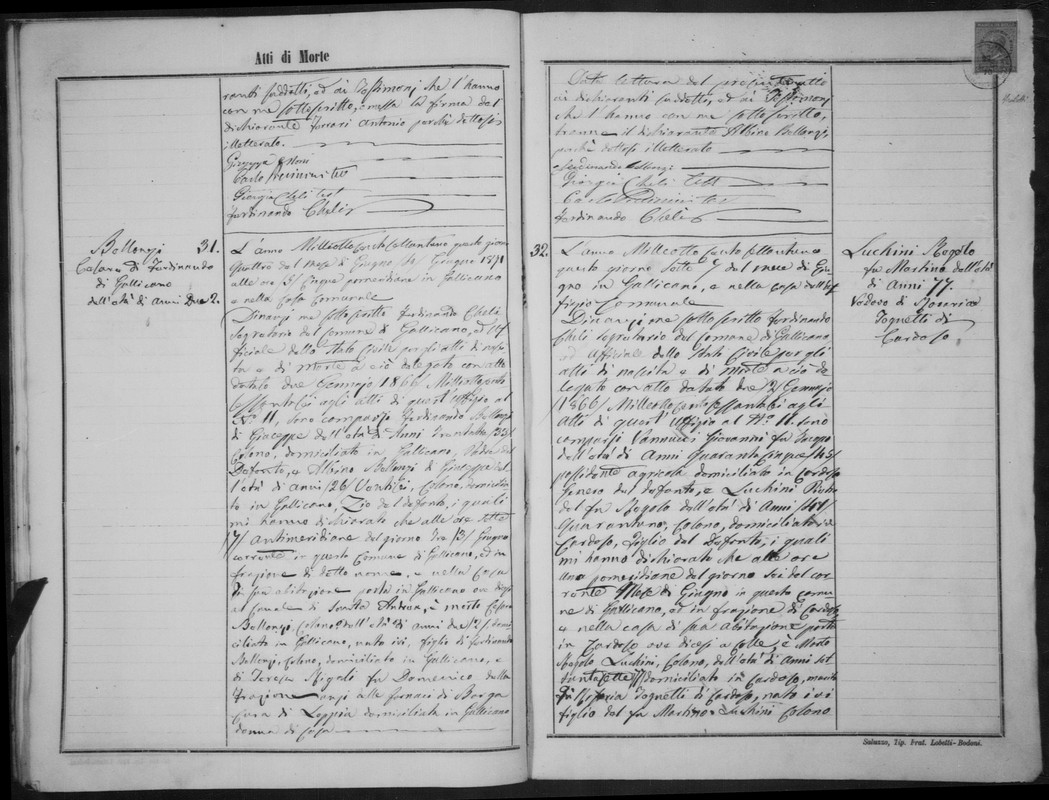 Atti di Morte
ranti suddetti, ed ai Testimonj che l'hanno
con me sottoscritto, omessa la firma del
dichiarante Ferrari Antonio perchè dettosi
illetterato.
Giuseppe
Carlo
Giorgio Cheli test
Ferdinando Cheli
Bollonzi 31.
Cesare di Ferdinando
di Gallicano
dell'età di Anni due 2.
L'anno Milleottocentosettantuno questo giorno
quattro del mese di Giugno /4/ Giugno 1871
alle ore /5/ Cinque pomeridiane in Gallicano
e nella Casa Comunale
Dinanzi me sottoscritto Ferdinando Cheli
Segretario del Comune di Gallicano, ed Uf
ficiale dello Stato Civile per gli atti di nasci
ta e di morte a ciò delegato con atto
datato due Gennajo 1866 Milleottocento
sessantasei agli atti di quest'Uffizio al
N° 11, sono comparsi Ferdinando Bollonzi
di Giuseppe dell'età di Anni
Colono, domiciliato in Gallicano, Padre del
Defonto, e Albino Bollonzi di Giuseppe del
l'età di anni /26/ Ventisei, Colono, domicilia
to in Gallicano, Zio del defonto, i quali
mi hanno dichiarato che alle ore sette
/7/ antimeridiane del giorno tre /3/ Giugno
corrente in questo Comune di Gallicano, ed in
frazione di detto nome, e nella Casa
di sua abitazione posta in Gallicano ove dicesi
al Canale di Santa Andrea, è morto Cesare
Bollonzi Colono dell'età di anni due /2/ domi
ciliato in Gallicano, nato ivi, figlio di Ferdinando
Bollonzi, Colono, domiciliato in Gallicano, e
di Teresa Rigali fu Domenico dalla
frazione alle fornaci di Barga
Cura di Loppia domiciliata in Gallicano
donna di Casa
Data lettura del presente atto
ai dichiaranti suddetti, ed ai Testimonj
che l'hanno con me sottoscritto,
tranne il dichiarante Albino Bollonzi,
perchè dettosi illetterato
Ferdinando Bollonzi
Giorgio Cheli Test
Carlo
Ferdinando Cheli
32.
L'anno Milleotto cento settantuno
questo giorno sette 7 del mese di Giu
gno in Gallicano, e nella Casa dell'Uf
fizio Comunale
Dinanzi me sottoscritto Ferdinando
Cheli segretario del Comune di Gallicano,
ed Ufficiale dello Stato Civile per gli
atti di nascita e di morte a ciò de
legato con atto datato due 2/ Gennajo
/1866/ Milleottocentosessantasei agli
atti di quest'Uffizio al N° 11. sono
comparsi Vannucci Giovanni fu
dell'età di Anni Quarantacinque /45/
possidente agricola domiciliato in Cardoso
Genero del defonto, e Luchini Pietro
del fu Regolo dell'età di Anni /41/
Quarantuno, Colono, domiciliato in
Cardoso, Figlio del Defonto, i quali
mi hanno dichiarato che alle ore
una pomeridiane del giorno sei del cor
rente Mese di Giugno in questo Comu
ne di Gallicano, ed in frazione di Cardoso,
e nella casa di sua abitazione posta
in Cardoso ove dicesi a Colle, è morto
Regolo Luchini, Colono, dell'età di Anni set
tantasette /77/ domiciliato in Cardoso, marito
fu Rosaria Tognetti di Cardoso, nato ivi
figlio del fu Martino Luchini Colono
Luchini Regolo
fu Martino dell'età
di Anni 77.
Vedovo di Rosaria
Tognetti di
Cardoso.
Saluzzo, Tip. Frat. Lobetti-Bodoni.